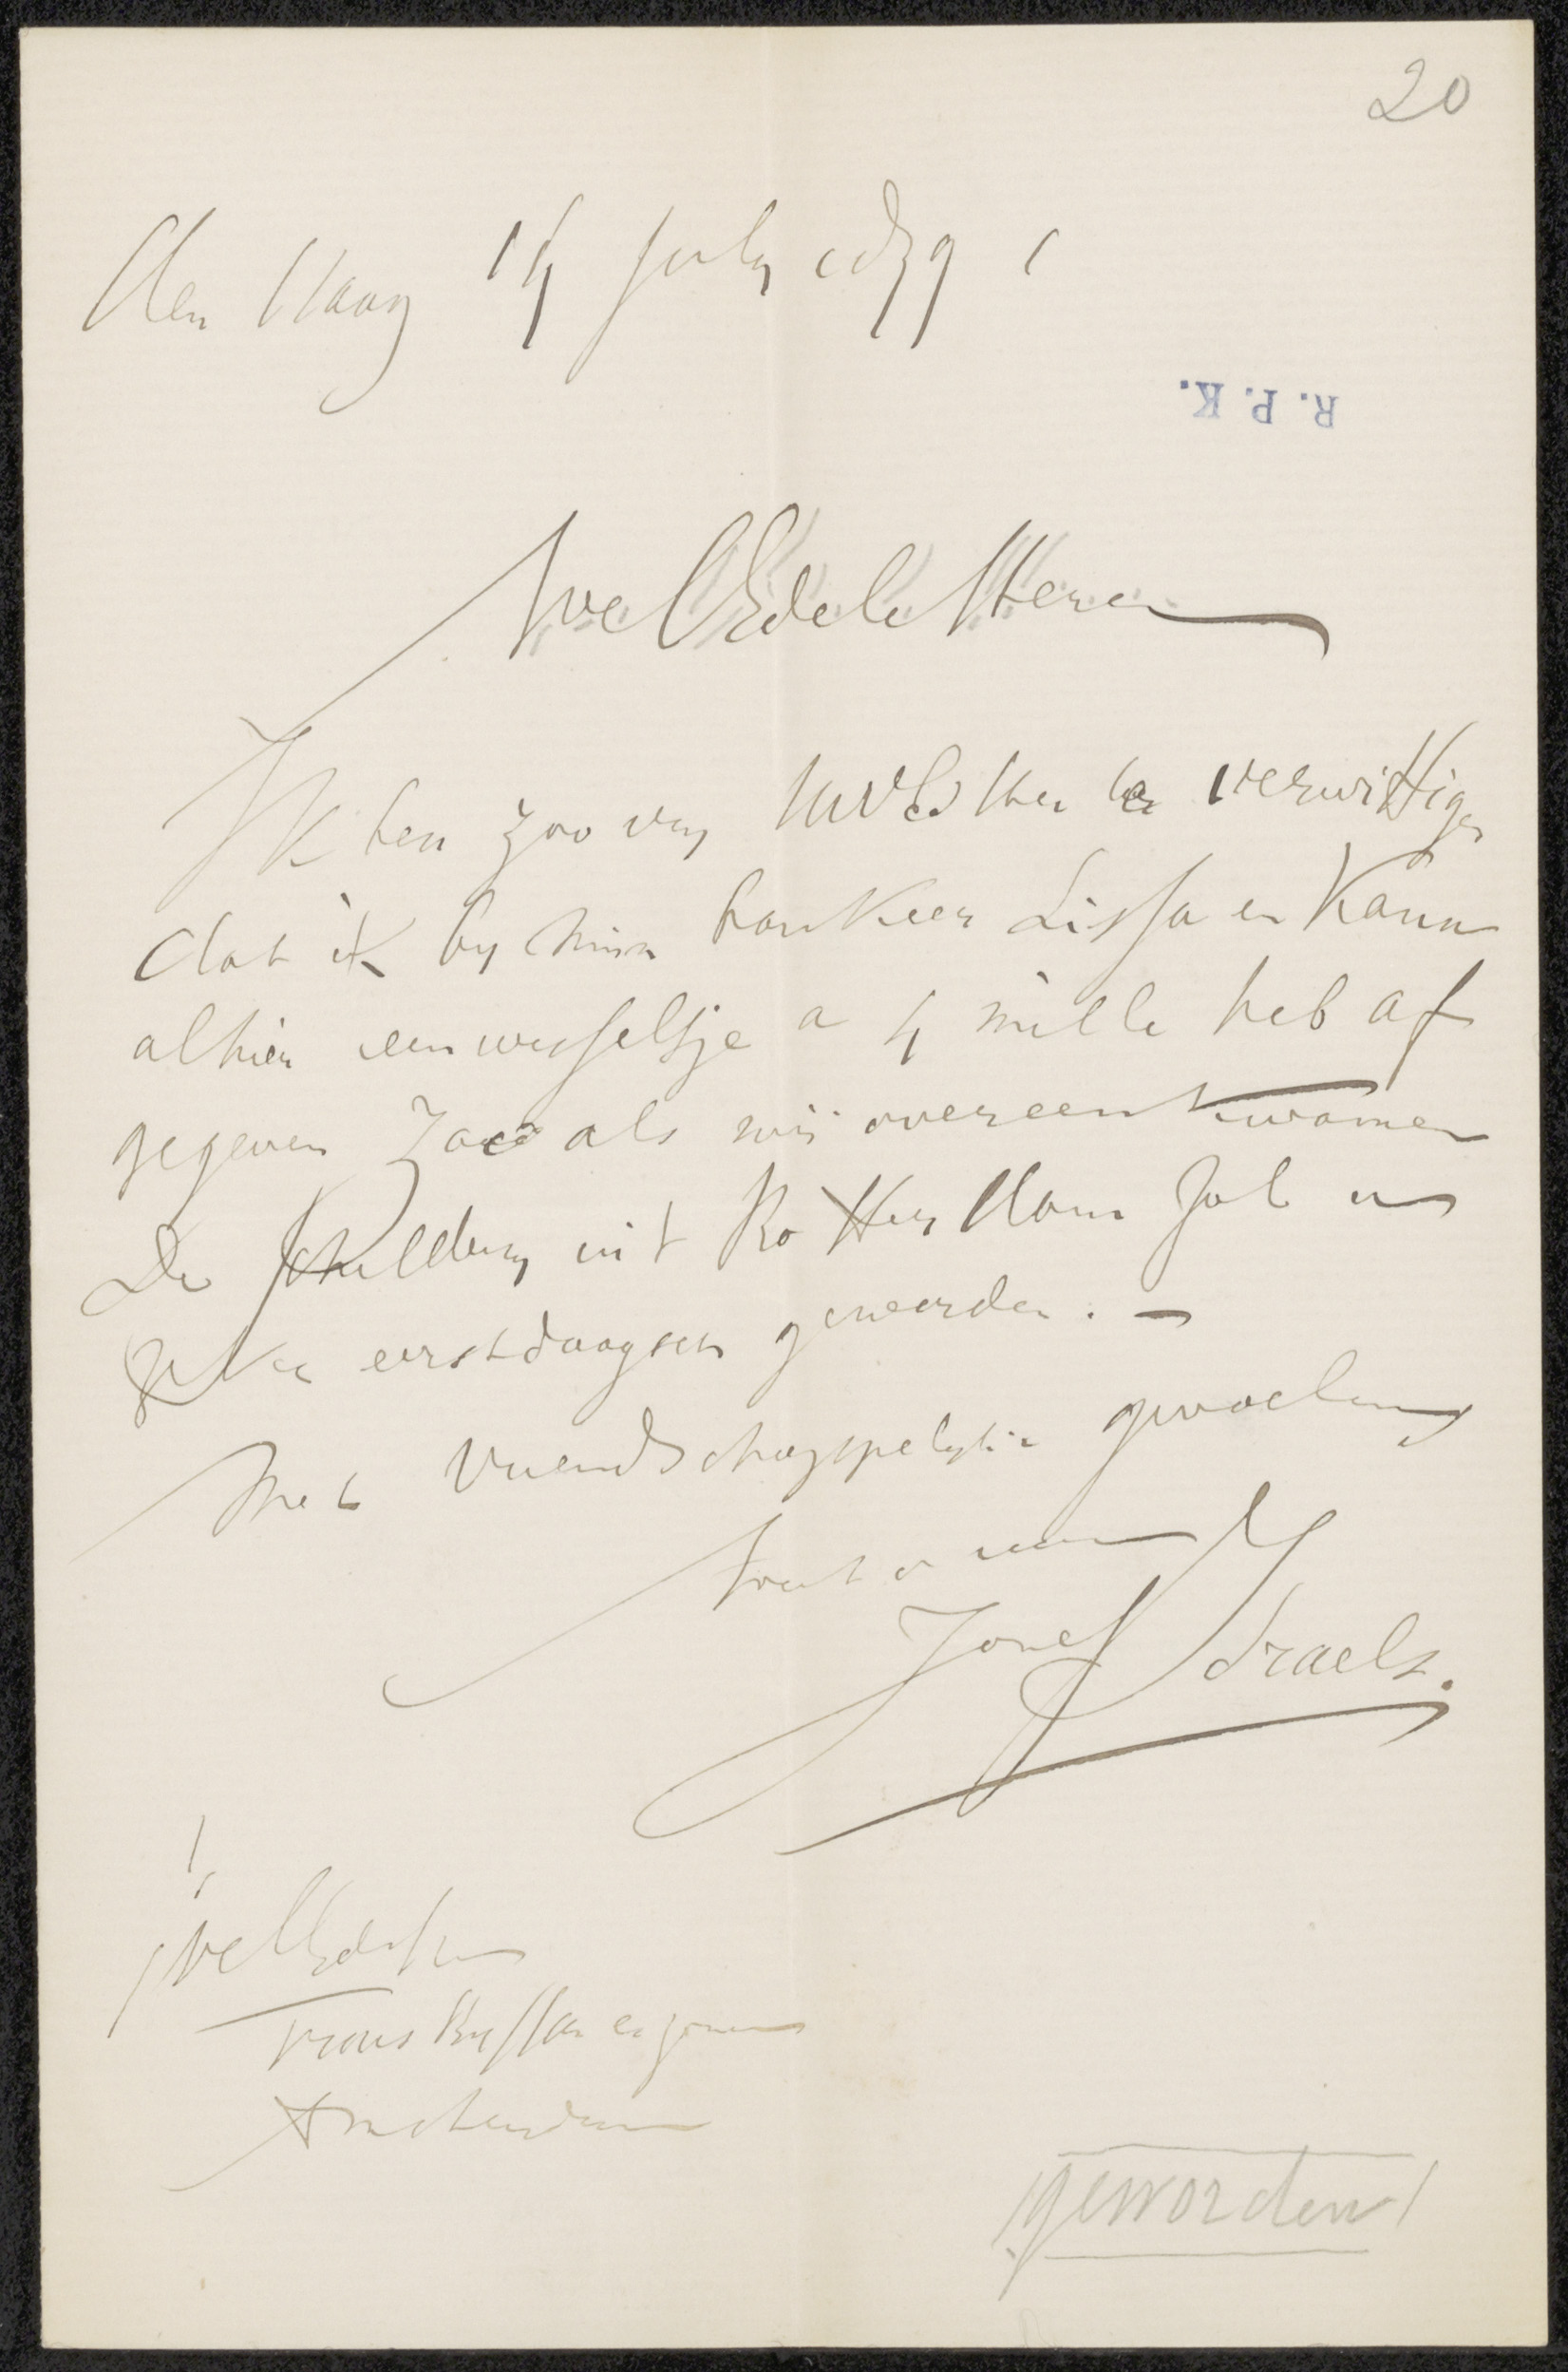 20
Den Haag 14 July
R. P. K.
WelEdele Heeren
Ik ben zoo vry UWEd te verwittigen
dat ik by mijn bankier Lissa en Kann
alhier een wisseltje a 4 mille heb af
gegeven zooals wij overeenkwamen
De schildery uit Rotterdam zal u
eerstdaagsch geworden. —
Met vriendschappelyke groeten
Jozef Israels.
WelEd Heeren
Frans Buffa en zonen
Amsterdam
geworden